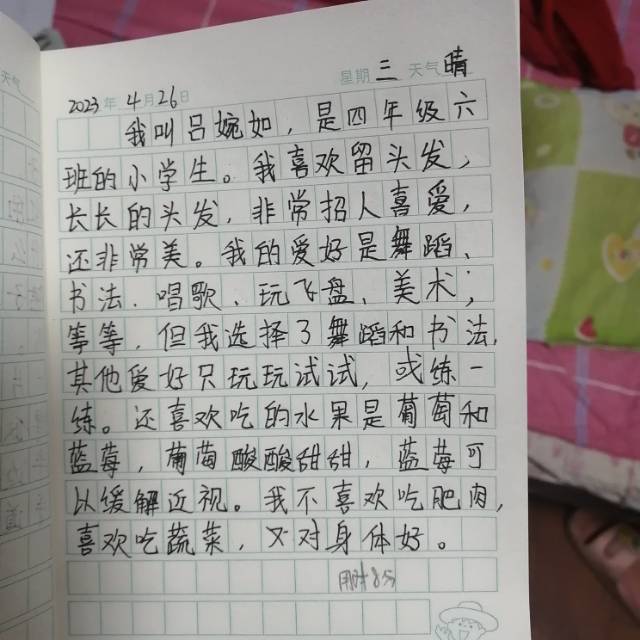 2023年4月26日 星期三 天气晴
我叫吕婉如，是四年级六
班的小学生。我喜欢留头发，
长长的头发，非常招人喜爱，
还非常美。我的爱好是舞蹈、
书法、唱歌、玩飞盘、美术，
等等，但我选择了舞蹈和书法，
其他爱好只玩玩试试，或练一
练。还喜欢吃的水果是葡萄和
蓝莓，葡萄酸酸甜甜，蓝莓可
以缓解近视。我不喜欢吃肥肉，
喜欢吃蔬菜，又对身体好。
用时8分